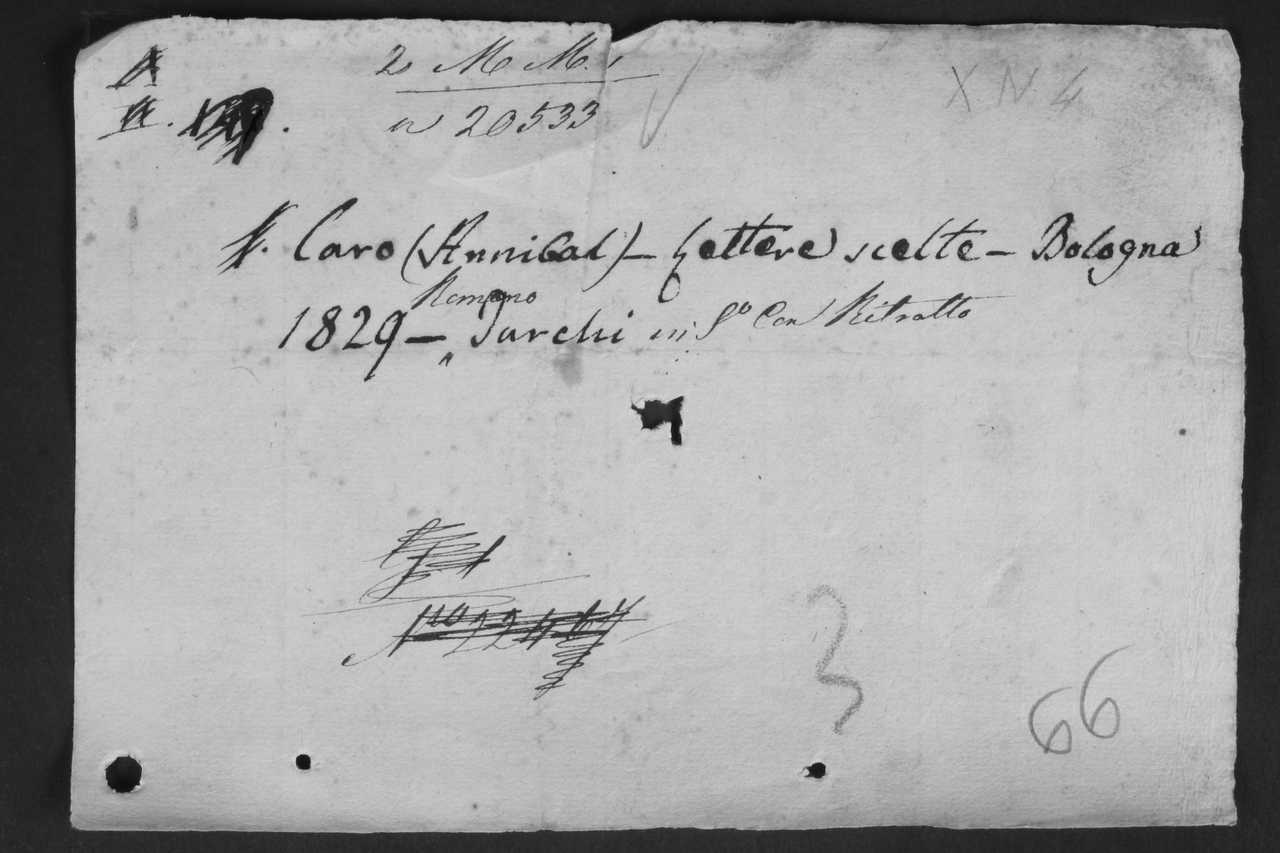 2 M M. 1
n 20533
X N 4
Caro (Annibal) – Lettere scelte – Bologna
Romano
1829 – Turchi in 8º Con Ritratto
3
66